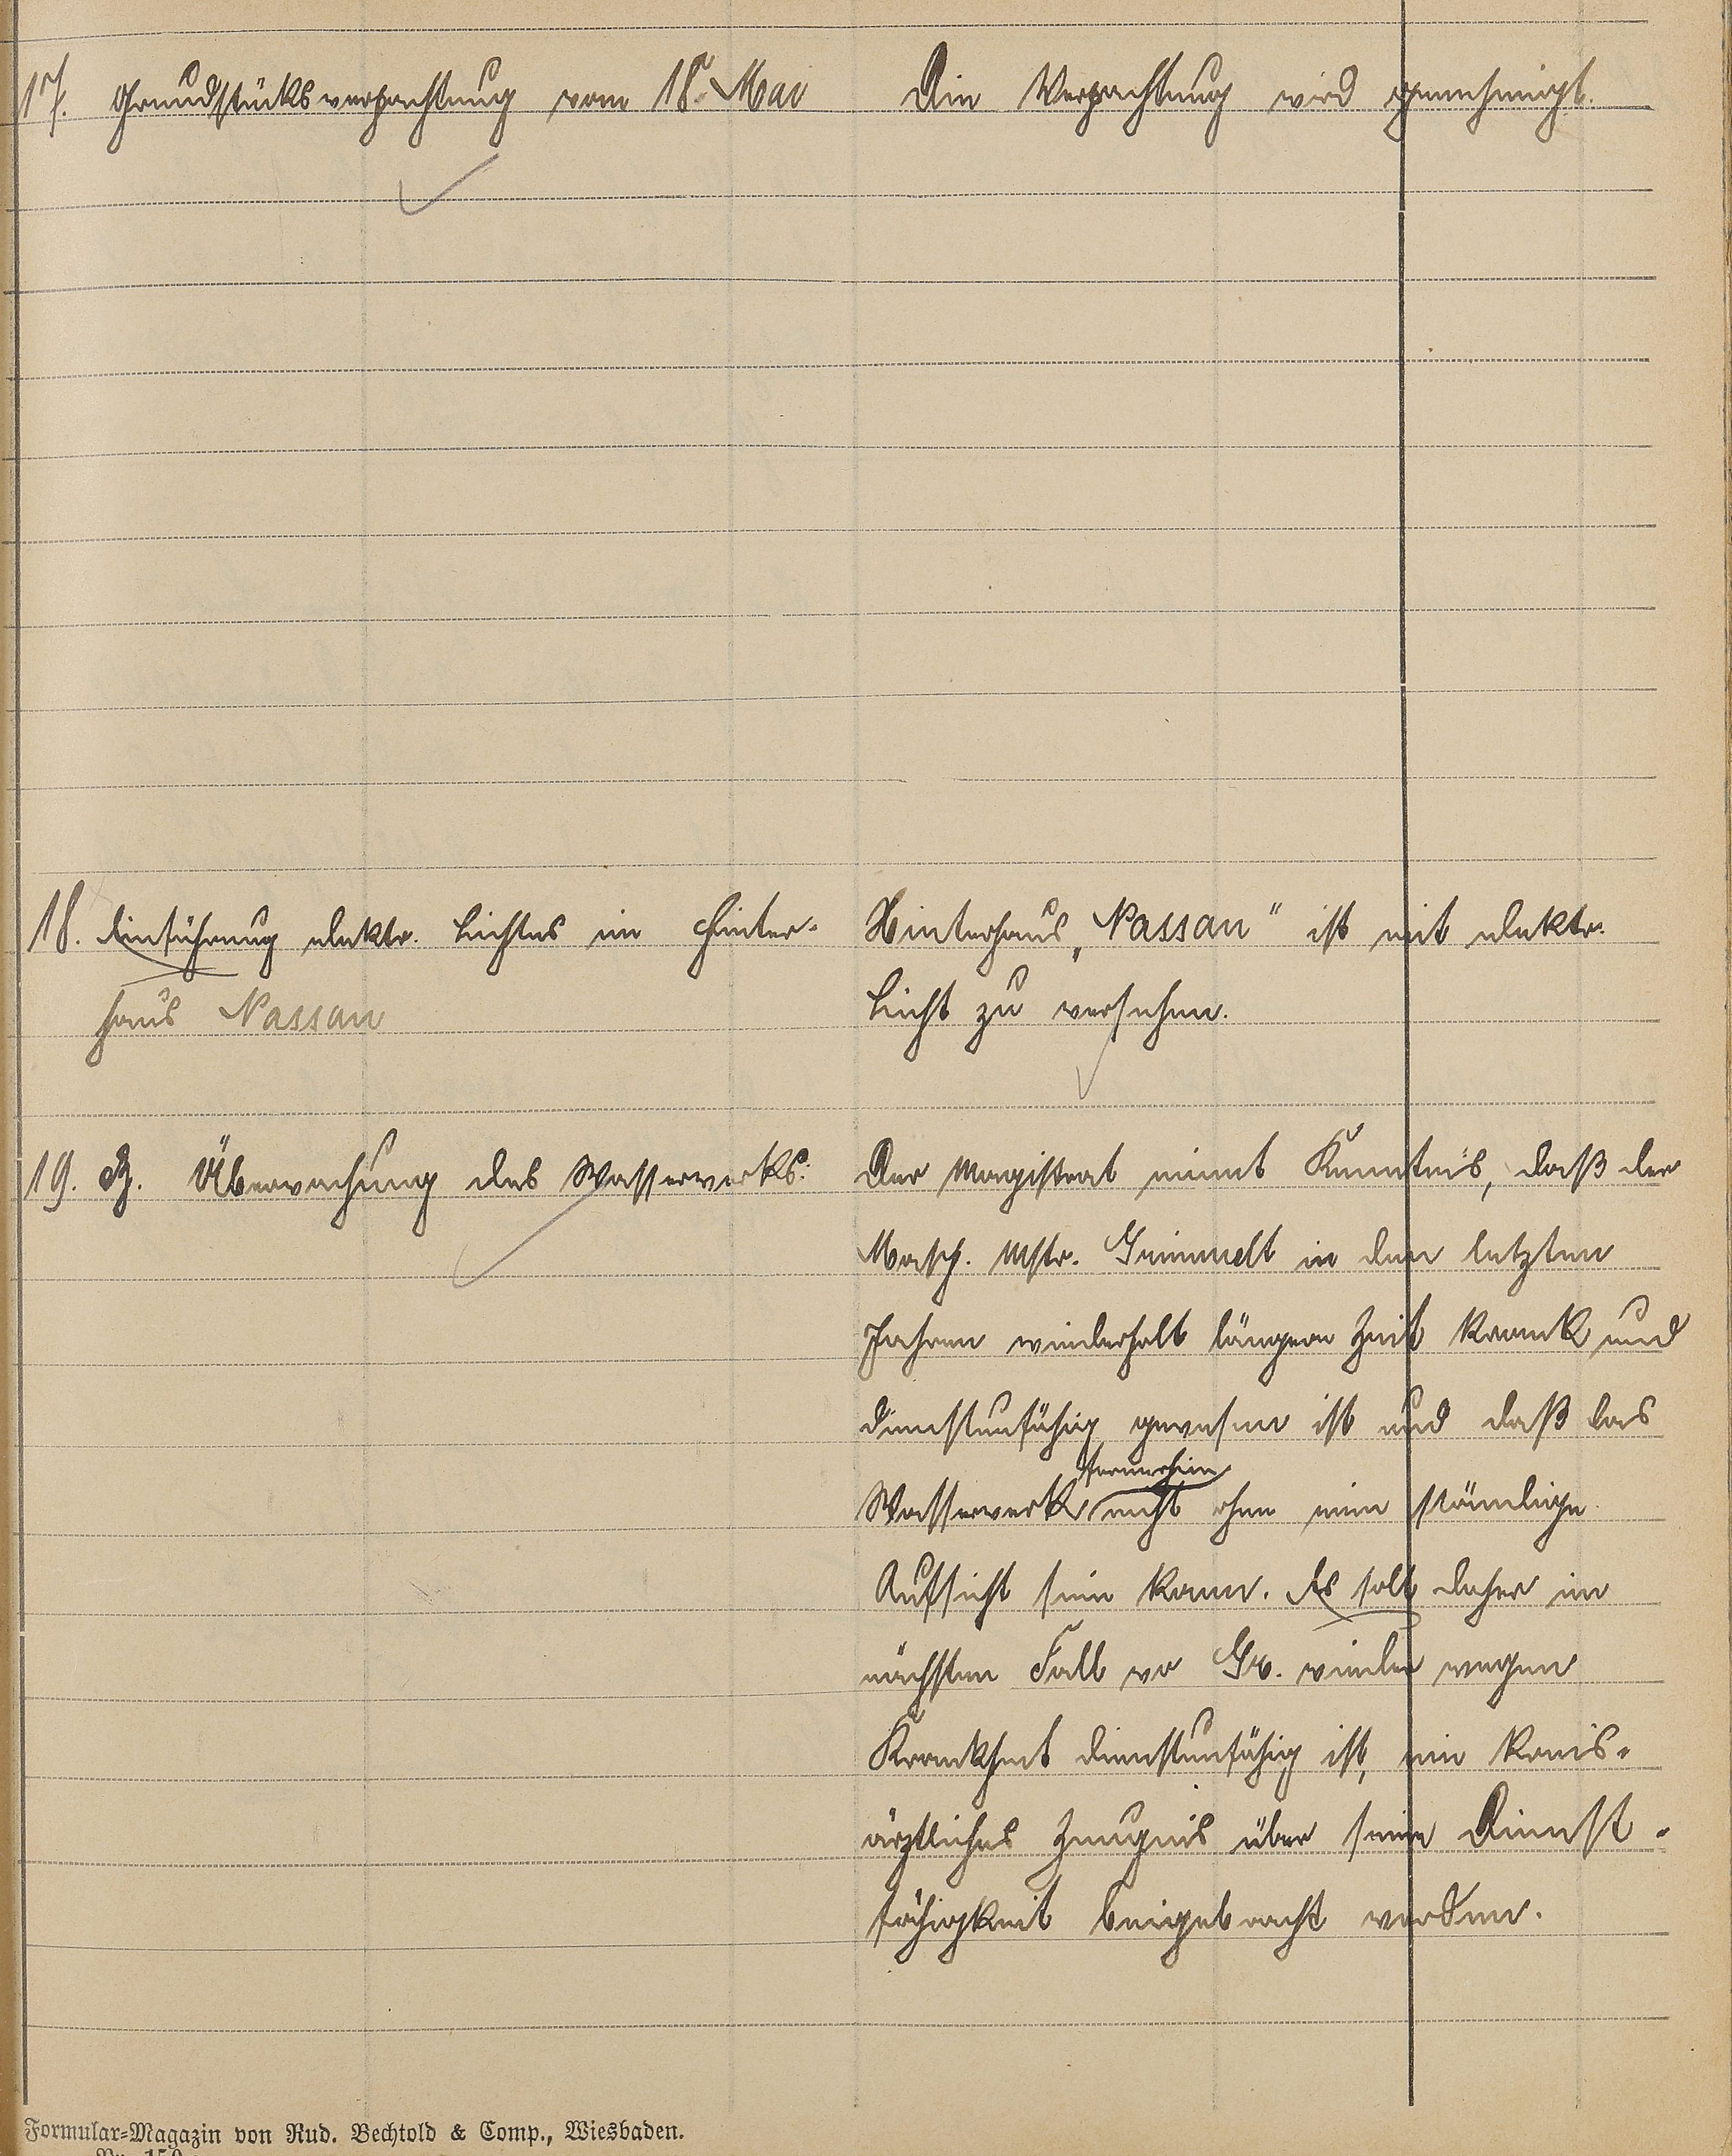 17. Grundstücksverpachtung vom 18. Mai
Die Verpachtung wird genehmigt.
18. Einführung elektr. Lichtes im Hinter-
haus Nassau
Hinterhaus „Nassau" ist mit elektr.
Licht zu versehen.
19. B. Überwachung des Wasserwerks:
Der Magistrat nimmt Kenntnis, daß der
Masch. Mstr. Grimmelt in den letzten
Jahren wiederholt längere Zeit krank und
dienstunfähig gewesen ist und daß das
Wasserwerk fernerhin nicht ohne eine ständige
Aufsicht sein kann. Es soll daher im
nächsten Fall wo Gr. wieder wegen
Krankheit dienstunfähig ist, ein kreis-
ärztliches Zeugnis über seine Dienst-
fähigkeit beigebracht werden.
Formular-Magazin von Rud. Bechtold & Comp., Wiesbaden.